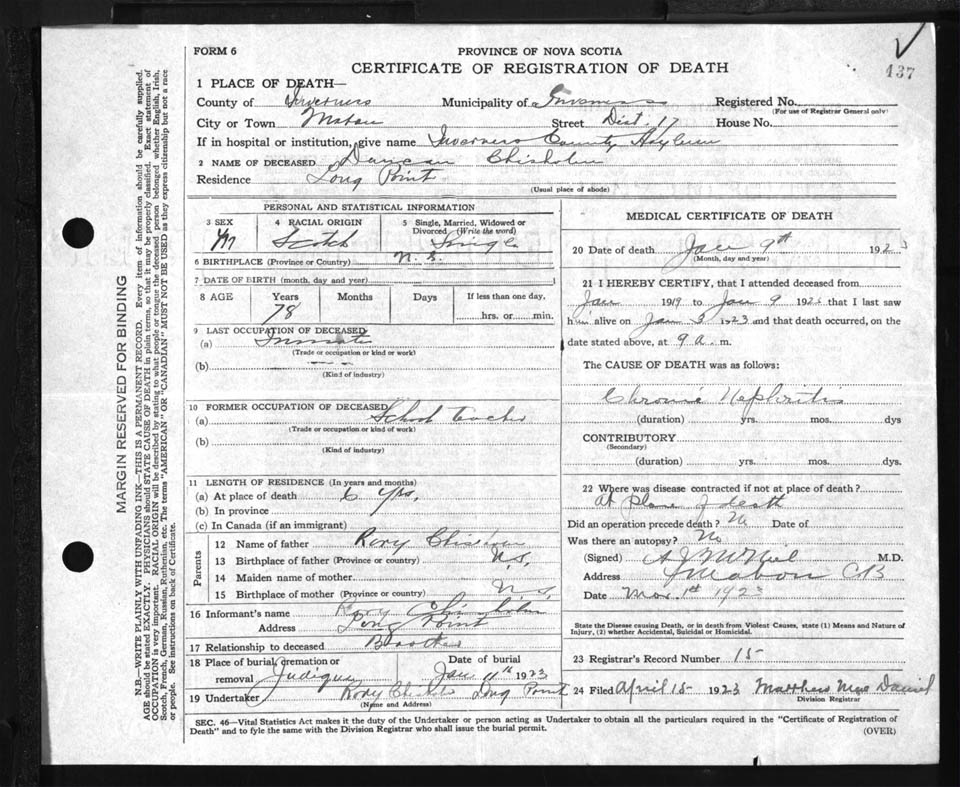 437
FORM 6
PROVINCE OF NOVA SCOTIA
CERTIFICATE OF REGISTRATION OF DEATH
1 PLACE OF DEATH—
County of Inverness Municipality of Inverness Registered No.
(For use of Registrar General only)
City or Town Mabou Street Dist. 17 House No.
If in hospital or institution, give name Inverness County Asylum
2 NAME OF DECEASED Duncan Chisholm
Residence Long Point
(Usual place of abode)
PERSONAL AND STATISTICAL INFORMATION
3 SEX 4 RACIAL ORIGIN 5 Single, Married, Widowed or Divorced (Write the word)
M Scotch Single
6 BIRTHPLACE (Province or Country) N. S.
7 DATE OF BIRTH (month, day and year)
8 AGE Years Months Days If less than one day,
78 hrs. or min.
9 LAST OCCUPATION OF DECEASED
(a) Inmate
(Trade or occupation or kind or work)
(b)
(Kind of industry)
10 FORMER OCCUPATION OF DECEASED
(a) School Teacher
(Trade or occupation or kind of work)
(b)
(Kind of industry)
11 LENGTH OF RESIDENCE (In years and months)
(a) At place of death 6 yrs.
(b) In province
(c) In Canada (if an immigrant)
Parents
12 Name of father Rory Chisholm
13 Birthplace of father (Province or country) N.S.
14 Maiden name of mother
15 Birthplace of mother (Province or country) N.S.
16 Informant's name Rory Chisholm
Address Long Point
17 Relationship to deceased Brother
18 Place of burial, cremation or removal Judique Date of burial Jan 11th 1923
19 Undertaker Rory Chisholm Long Point
(Name and Address)
MEDICAL CERTIFICATE OF DEATH
20 Date of death Jan 9th 192
(Month, day and year)
21 I HEREBY CERTIFY, that I attended deceased from
Jan 1919 to Jan 9 192 that I last saw
him alive on Jan 3 1923 and that death occurred, on the
date stated above, at 9 a. m.
The CAUSE OF DEATH was as follows:
Chronic Nephritis
(duration) yrs. mos. dys
CONTRIBUTORY
(Secondary)
(duration) yrs. mos. dys.
22 Where was disease contracted if not at place of death?
At place of death
Did an operation precede death? No Date of
Was there an autopsy? No
(Signed) A J McNeil M.D.
Address Mabou CB
Date Mar. 1st 1923
State the Disease causing Death, or in death from Violent Causes, state (1) Means and Nature of
Injury, (2) whether Accidental, Suicidal or Homicidal.
23 Registrar's Record Number 15
24 Filed April 15 1923 Matthew Mac Daniel
Division Registrar
SEC. 46—Vital Statistics Act makes it the duty of the Undertaker or person acting as Undertaker to obtain all the particulars required in the "Certificate of Registration of
Death" and to fyle the same with the Division Registrar who shall issue the burial permit.
(OVER)
MARGIN RESERVED FOR BINDING
N.B—WRITE PLAINLY WITH UNFADING INK—THIS IS A PERMANENT RECORD. Every item of information should be carefully supplied.
AGE should be stated EXACTLY. PHYSICIANS should STATE CAUSE OF DEATH in plain terms, so that it may be properly classified. Exact statement of
OCCUPATION is very important. RACIAL ORIGIN will be described by stating to what people or tongue the deceased person belonged whether English, Irish,
Scotch, French, German, Russian, Ruthenian, etc. The terms "AMERICAN" OR "CANADIAN" MUST NOT BE USED as they express citizenship but not a race
or people. See instructions on back of Certificate.